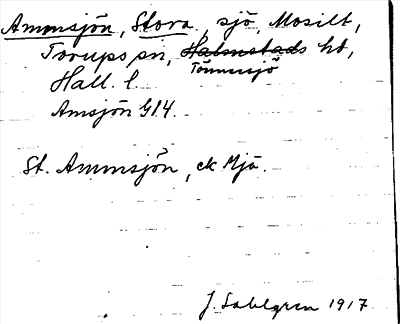 Ammsjön, Stora, sjö, Mosilt,
Torups sn, Halmstads hd,
Tönnersjö
Hall. l.
Amsjön G14.
St. Ammsjön, ek Mjä.
J. Sahlgren 1917